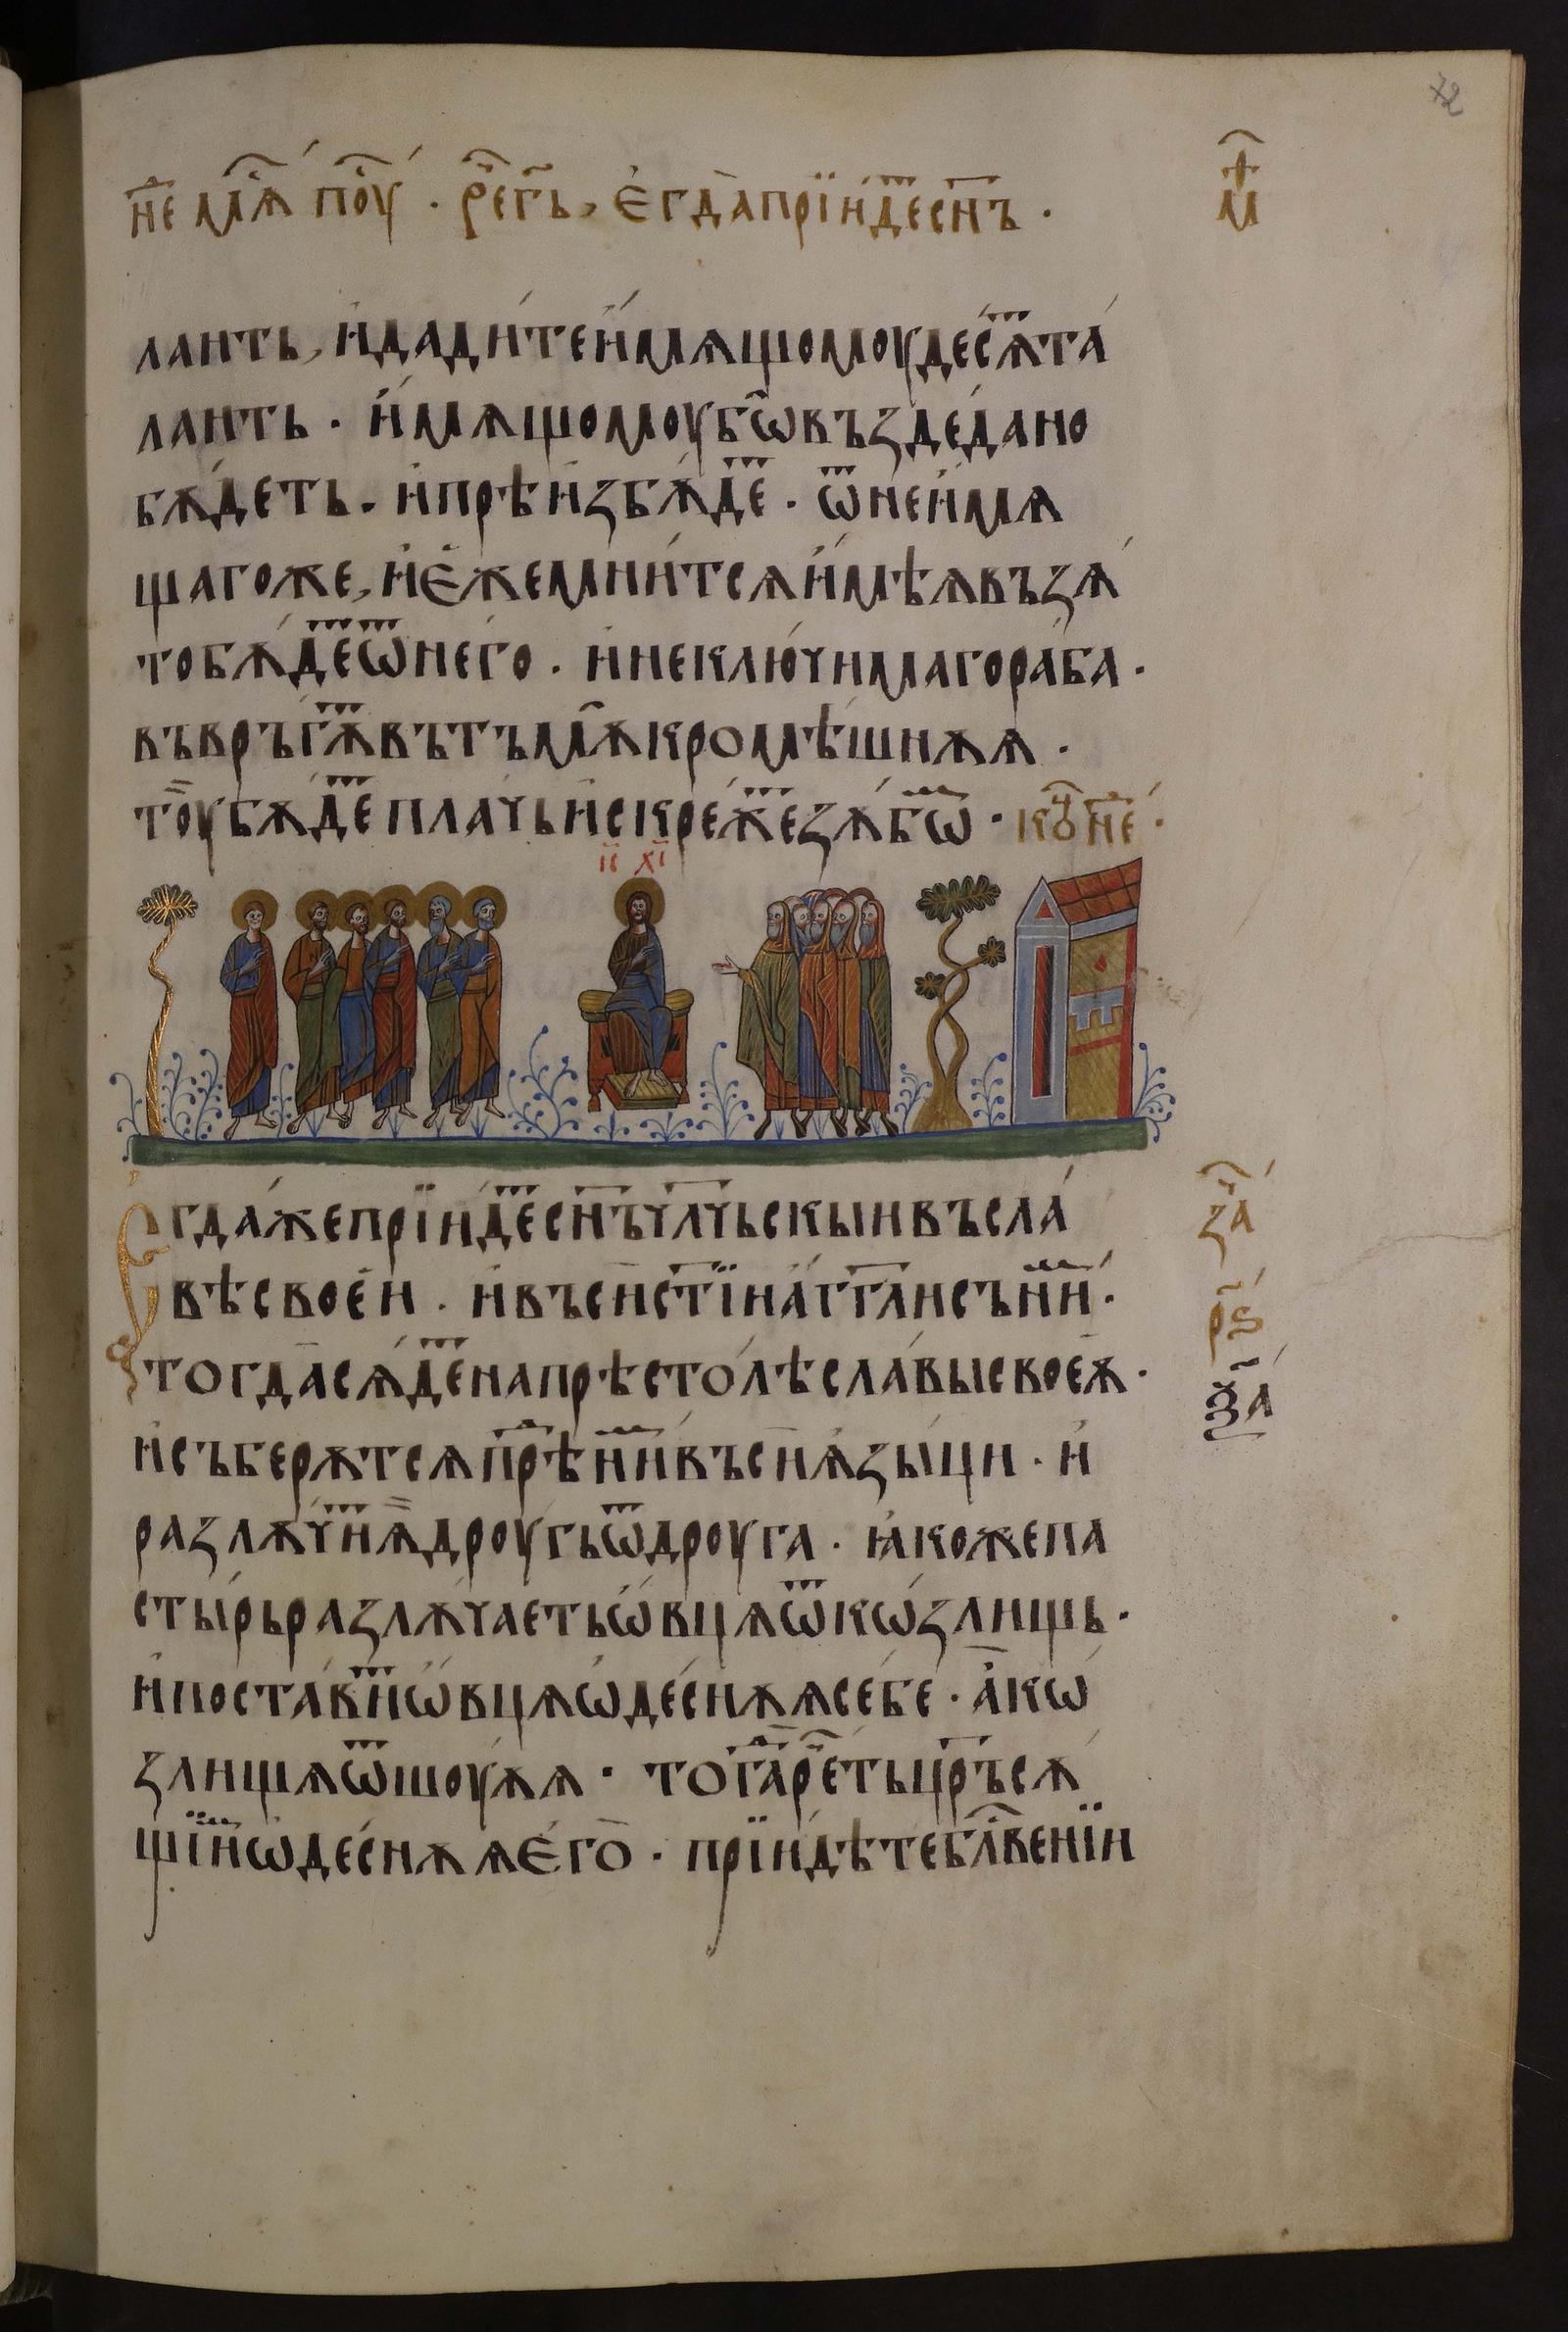 н҃е мⷭ҇ѧ поⷭ҇у · рⷱ҇е г҃ь, є҆гда̀ прїи́детⷭ҇ сн҃ъ ·
м
лантъ, и҆дади́те и҆́мѫщомоу де́сѧⷮ та́
лантъ · и҆́мѫщомоу бѡ҆ въздедано
бѫ́деть · и҆ прѣи҆збѫ́деⷮ · ѿ не и҆мѫ
щагоже, и҆ є҆́же мни́тсѧ и҆мѣѧ възѧ́
то бѫ́деⷮ ѿ него · и҆ неклю́чимаго раба ·
въвръгѣⷮѫ въ тъмѫ̑ кромѣ́шнѫѧ ·
тоу̀ бѫ́деⷮ плачь и҆ скре́жеⷮ зѫ́бѡⷨ · коⷰ҇ не ·
іс хс
Є҆гда́же прїи́деⷮ сн҃ъ чл҃чьскыи въ сла́
вѣ своєи · и҆ въси ст҃їи а́гг҃ли съ ниⷨ ·
тогда̀ сѧ́деⷮ на прѣсто́лѣ сла́вы своеѫ ·
и҆ съберѫтсѧ прⷣѣ ниⷨ въси ѧ҆зы́ци · и҆
разлѫ́чиⷮ ѫ̀ дроугъ ѿ дроуга · ꙗ҆коже па
сты́рь разлѫ́чаеть ѡ҆́вцѧ ѿ кѡ́злищь ·
и҆ поста́виⷮ ѡ҆́вцѧ ѡ҆ де́снѫѧ себе · а҆ кѡ́
злищѧ ѿ шоу́ѫѧ · тогⷣа рⷱ҇еть цр҃ъ сѫ́
щїиⷨ ѡ҆ де́снѫѧ є҆го̀ · прїидѣ́те блⷭ҇венїи
заⷱ҇
рѕ
ѯ҃а
72